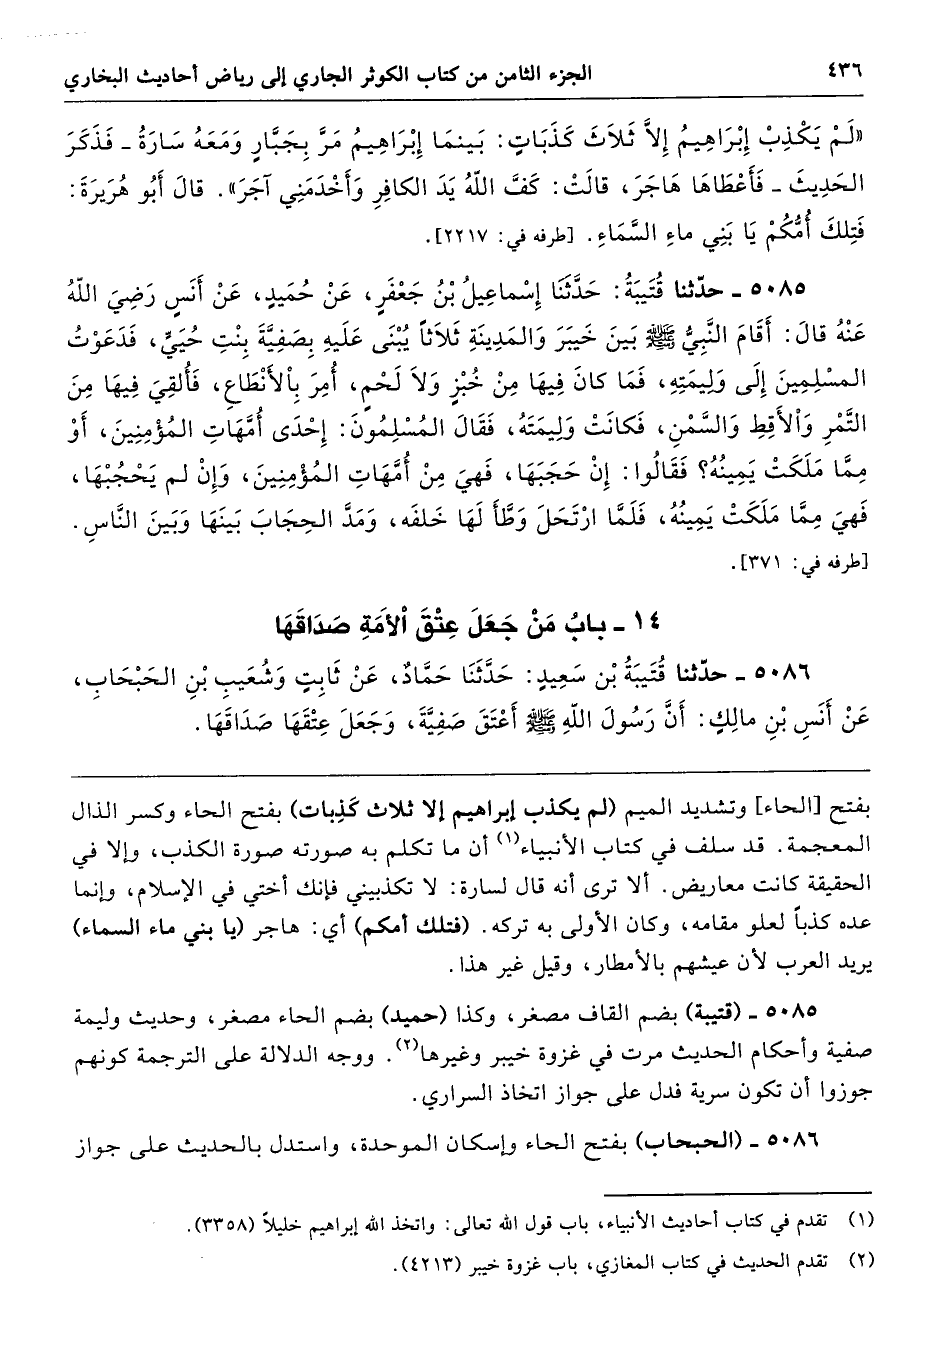 ٤٣٦ الجزء الثامن من كتاب الكوثر الجاري إلى رياض أحاديث البخاري
«لَمْ يَكْذِبْ إِبْرَاهِيمُ إِلاَّ ثَلاَثَ كَذَبَاتٍ: بَيْنَما إِبْرَاهِيمُ مَرَّ بِجَبَّارٍ وَمَعَهُ سَارَةُ ـ فَذَكَرَ
الحَدِيثَ ـ فَأَعْطَاهَا هَاجَرَ، قالَتْ: كَفَّ اللّهُ يَدَ الكافِرِ وَأَخْدَمَنِي آجَرَ». قالَ أَبُو هُرَيْرَةَ:
فَتِلكَ أُمُّكُمْ يَا بَنِي ماءِ السَّمَاءِ. [طرفه في: ٢٢١٧].
٥٠٨٥ ـ حدّثنا قُتَيبَةُ: حَدَّثَنَا إِسْماعِيلُ بْنُ جَعْفَرٍ، عَنْ حُمَيدٍ، عَنْ أَنَسٍ رَضِيَ اللّهُ
عَنْهُ قالَ: أَقَامَ النَّبِيُّ ﷺ بَينَ خَيبَرَ وَالمَدِينَةِ ثَلاَثاً يُبْنَى عَلَيهِ بِصَفِيَّةَ بِنْتِ حُيَيٍّ، فَدَعَوْتُ
المسْلِمِينَ إِلَى وَلِيمَتِهِ، فَمَا كانَ فِيهَا مِنْ خُبْزٍ وَلاَ لَحْمٍ، أُمِرَ بِالأَنْطَاعِ، فَأُلقِيَ فِيهَا مِنَ
التَّمْرِ وَالأَقِطِ وَالسَّمْنِ، فَكانَتْ وَلِيمَتَهُ، فَقَالَ المُسْلِمُونَ: إِحْدَى أُمَّهَاتِ المُؤْمِنِينَ، أَوْ
مِمَّا مَلَكَتْ يَمِينُهُ؟ فَقَالُوا: إِنْ حَجَبَهَا، فَهِيَ مِنْ أُمَّهَاتِ المُؤْمِنِينَ، وَإِنْ لم يَحْجُبْهَا،
فَهِيَ مِمَّا مَلَكَتْ يَمِينُهُ، فَلَمَّا ارْتَحَلَ وَطَّأَ لَهَا خَلفَه، وَمَدَّ الحِجَابَ بَينَهَا وَبَينَ النَّاسِ.
[طرفه في: ٣٧١].
١٤ ـ بابُ مَنْ جَعَلَ عِتْقَ الأَمَةِ صَدَاقَهَا
٥٠٨٦ ـ حدّثنا قُتَيبَةُ بْن سَعِيدٍ: حَدَّثَنَا حَمَّادٌ، عَنْ ثَابِتٍ وَشُعَيبِ بْنِ الحَبْحَابِ،
عَنْ أَنَسِ بْنِ مالِكٍ: أَنَّ رَسُولَ اللّهِ ﷺ أَعْتَقَ صَفِيَّةَ، وَجَعَلَ عِتْقَهَا صَدَاقَهَا.
بفتح [الحاء] وتشديد الميم (لم يكذب إبراهيم إلا ثلاث كَذِبات) بفتح الحاء وكسر الذال
المعجمة. قد سلف في كتاب الأنبياء(١) أن ما تكلم به صورته صورة الكذب، وإلا في
الحقيقة كانت معاريض. ألا ترى أنه قال لسارة: لا تكذبيني فإنك أختي في الإسلام، وإنما
عده كذباً لعلو مقامه، وكان الأولى به تركه. (فتلك أمكم) أي: هاجر (يا بني ماء السماء)
يريد العرب لأن عيشهم بالأمطار، وقيل غير هذا.
٥٠٨٥ ـ (قتيبة) بضم القاف مصغر، وكذا (حميد) بضم الحاء مصغر، وحديث وليمة
صفية وأحكام الحديث مرت في غزوة خيبر وغيرها(٢). ووجه الدلالة على الترجمة كونهم
جوزوا أن تكون سرية فدل على جواز اتخاذ السراري.
٥٠٨٦ ـ (الحبحاب) بفتح الحاء وإسكان الموحدة، واستدل بالحديث على جواز
(١) تقدم في كتاب أحاديث الأنبياء، باب قول الله تعالى: واتخذ الله إبراهيم خليلاً (٣٣٥٨).
(٢) تقدم الحديث في كتاب المغازي، باب غزوة خيبر (٤٢١٣).